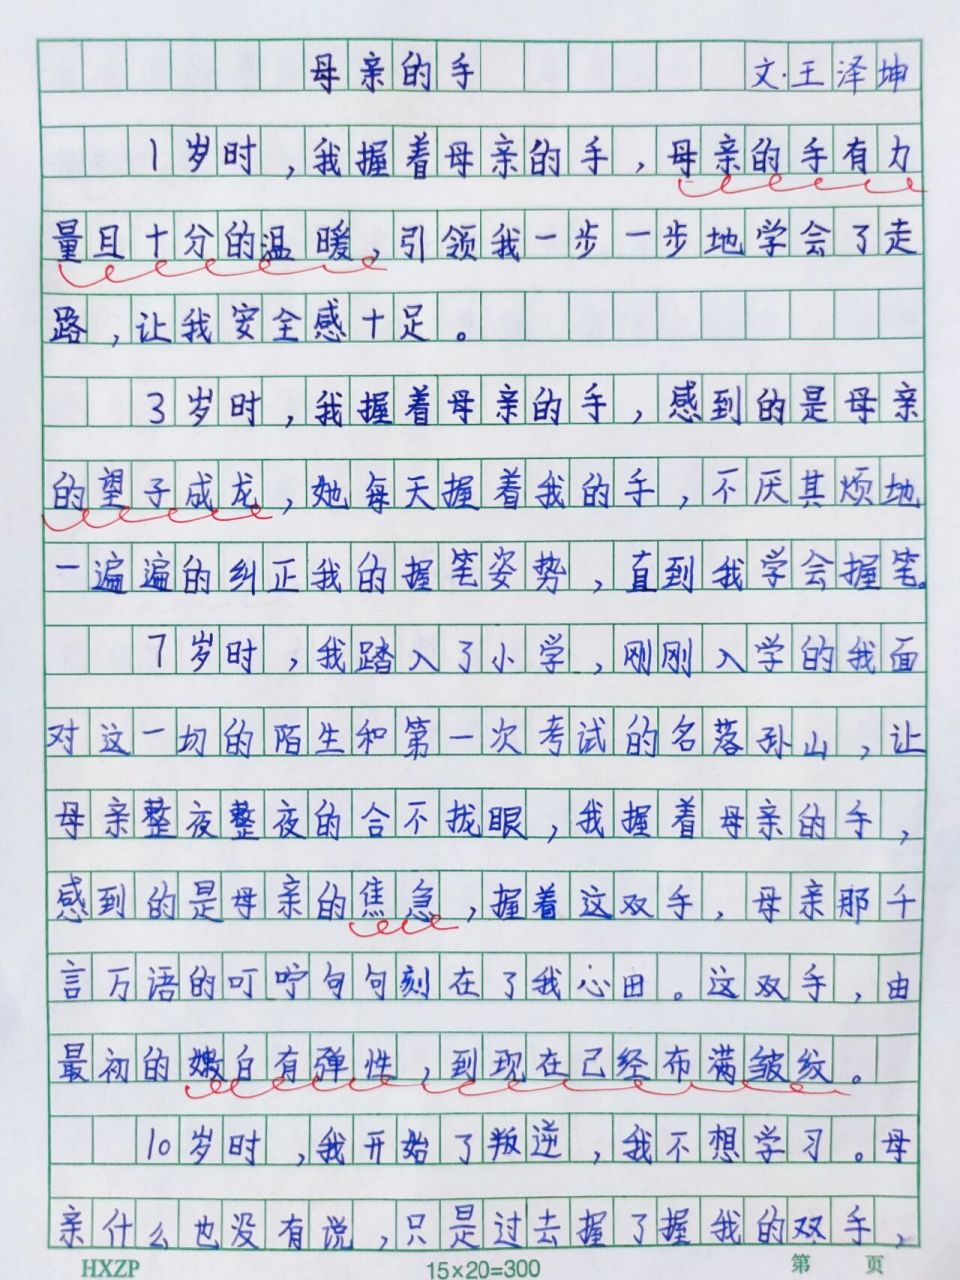 母亲的手 文·王泽坤
1岁时,我握着母亲的手,母亲的手有力
量且十分的温暖,引领我一步一步地学会了走
路,让我安全感十足。
3岁时,我握着母亲的手,感到的是母亲
的望子成龙,她每天握着我的手,不厌其烦地
一遍遍的纠正我的握笔姿势,直到我学会握笔。
7岁时,我踏入了小学,刚刚入学的我面
对这一切的陌生和第一次考试的名落孙山,让
母亲整夜整夜的合不拢眼,我握着母亲的手,
感到的是母亲的焦急,握着这双手,母亲那千
言万语的叮咛句句刻在了我心田。这双手,由
最初的嫩白有弹性,到现在已经布满皱纹。
10岁时,我开始了叛逆,我不想学习。母
亲什么也没有说,只是过去握了握我的双手,
HXZP 15×20=300 第 页